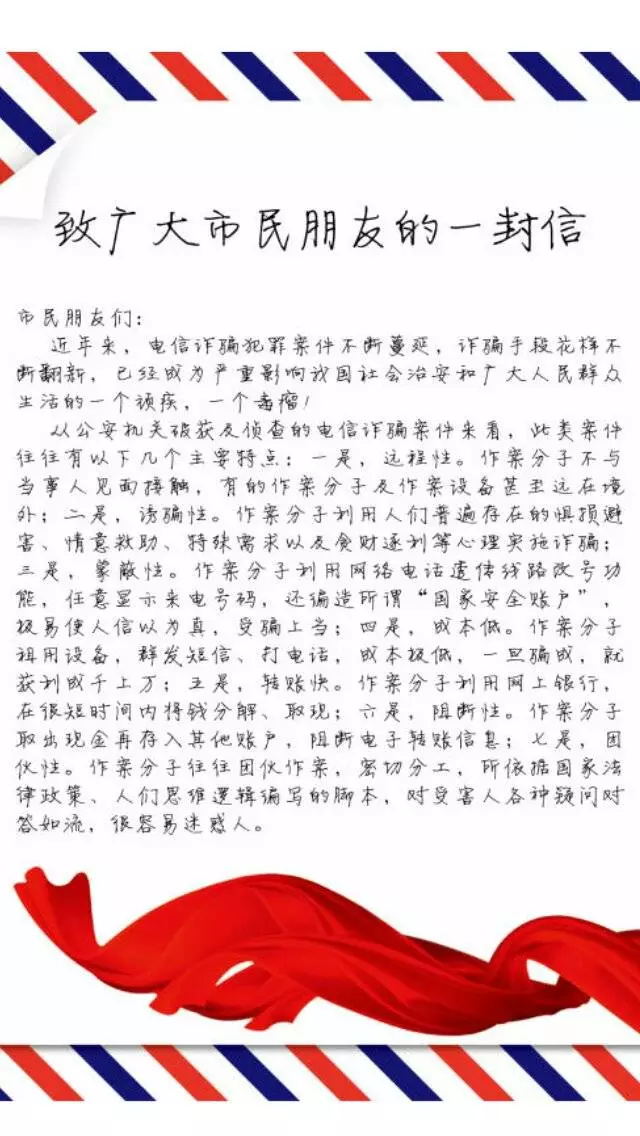 致广大市民朋友的一封信
市民朋友们：
近年来，电信诈骗犯罪案件不断蔓延，诈骗手段花样不
断翻新，已经成为严重影响我国社会治安和广大人民群众
生活的一个顽疾，一个毒瘤！
从公安机关破获及侦查的电信诈骗案件来看，此类案件
往往有以下几个主要特点：一是，远程性。作案分子不与
当事人见面接触，有的作案分子及作案设备甚至远在境
外；二是，诱骗性。作案分子利用人们普遍存在的惧损避
害、情意救助、特殊需求以及贪财逐利等心理实施诈骗；
三是，蒙蔽性。作案分子利用网络电话透传线路改号功
能，任意显示来电号码，还编造所谓“国家安全账户”，
极易使人信以为真，受骗上当；四是，成本低。作案分子
租用设备，群发短信、打电话，成本极低，一旦骗成，就
获利成千上万；五是，转账快。作案分子利用网上银行，
在很短时间内将钱分解、取现；六是，阻断性。作案分子
取出现金再存入其他账户，阻断电子转账信息；七是，团
伙性。作案分子往往团伙作案，密切分工，所依据国家法
律政策、人们思维逻辑编写的脚本，对受害人各种疑问对
答如流，很容易迷惑人。